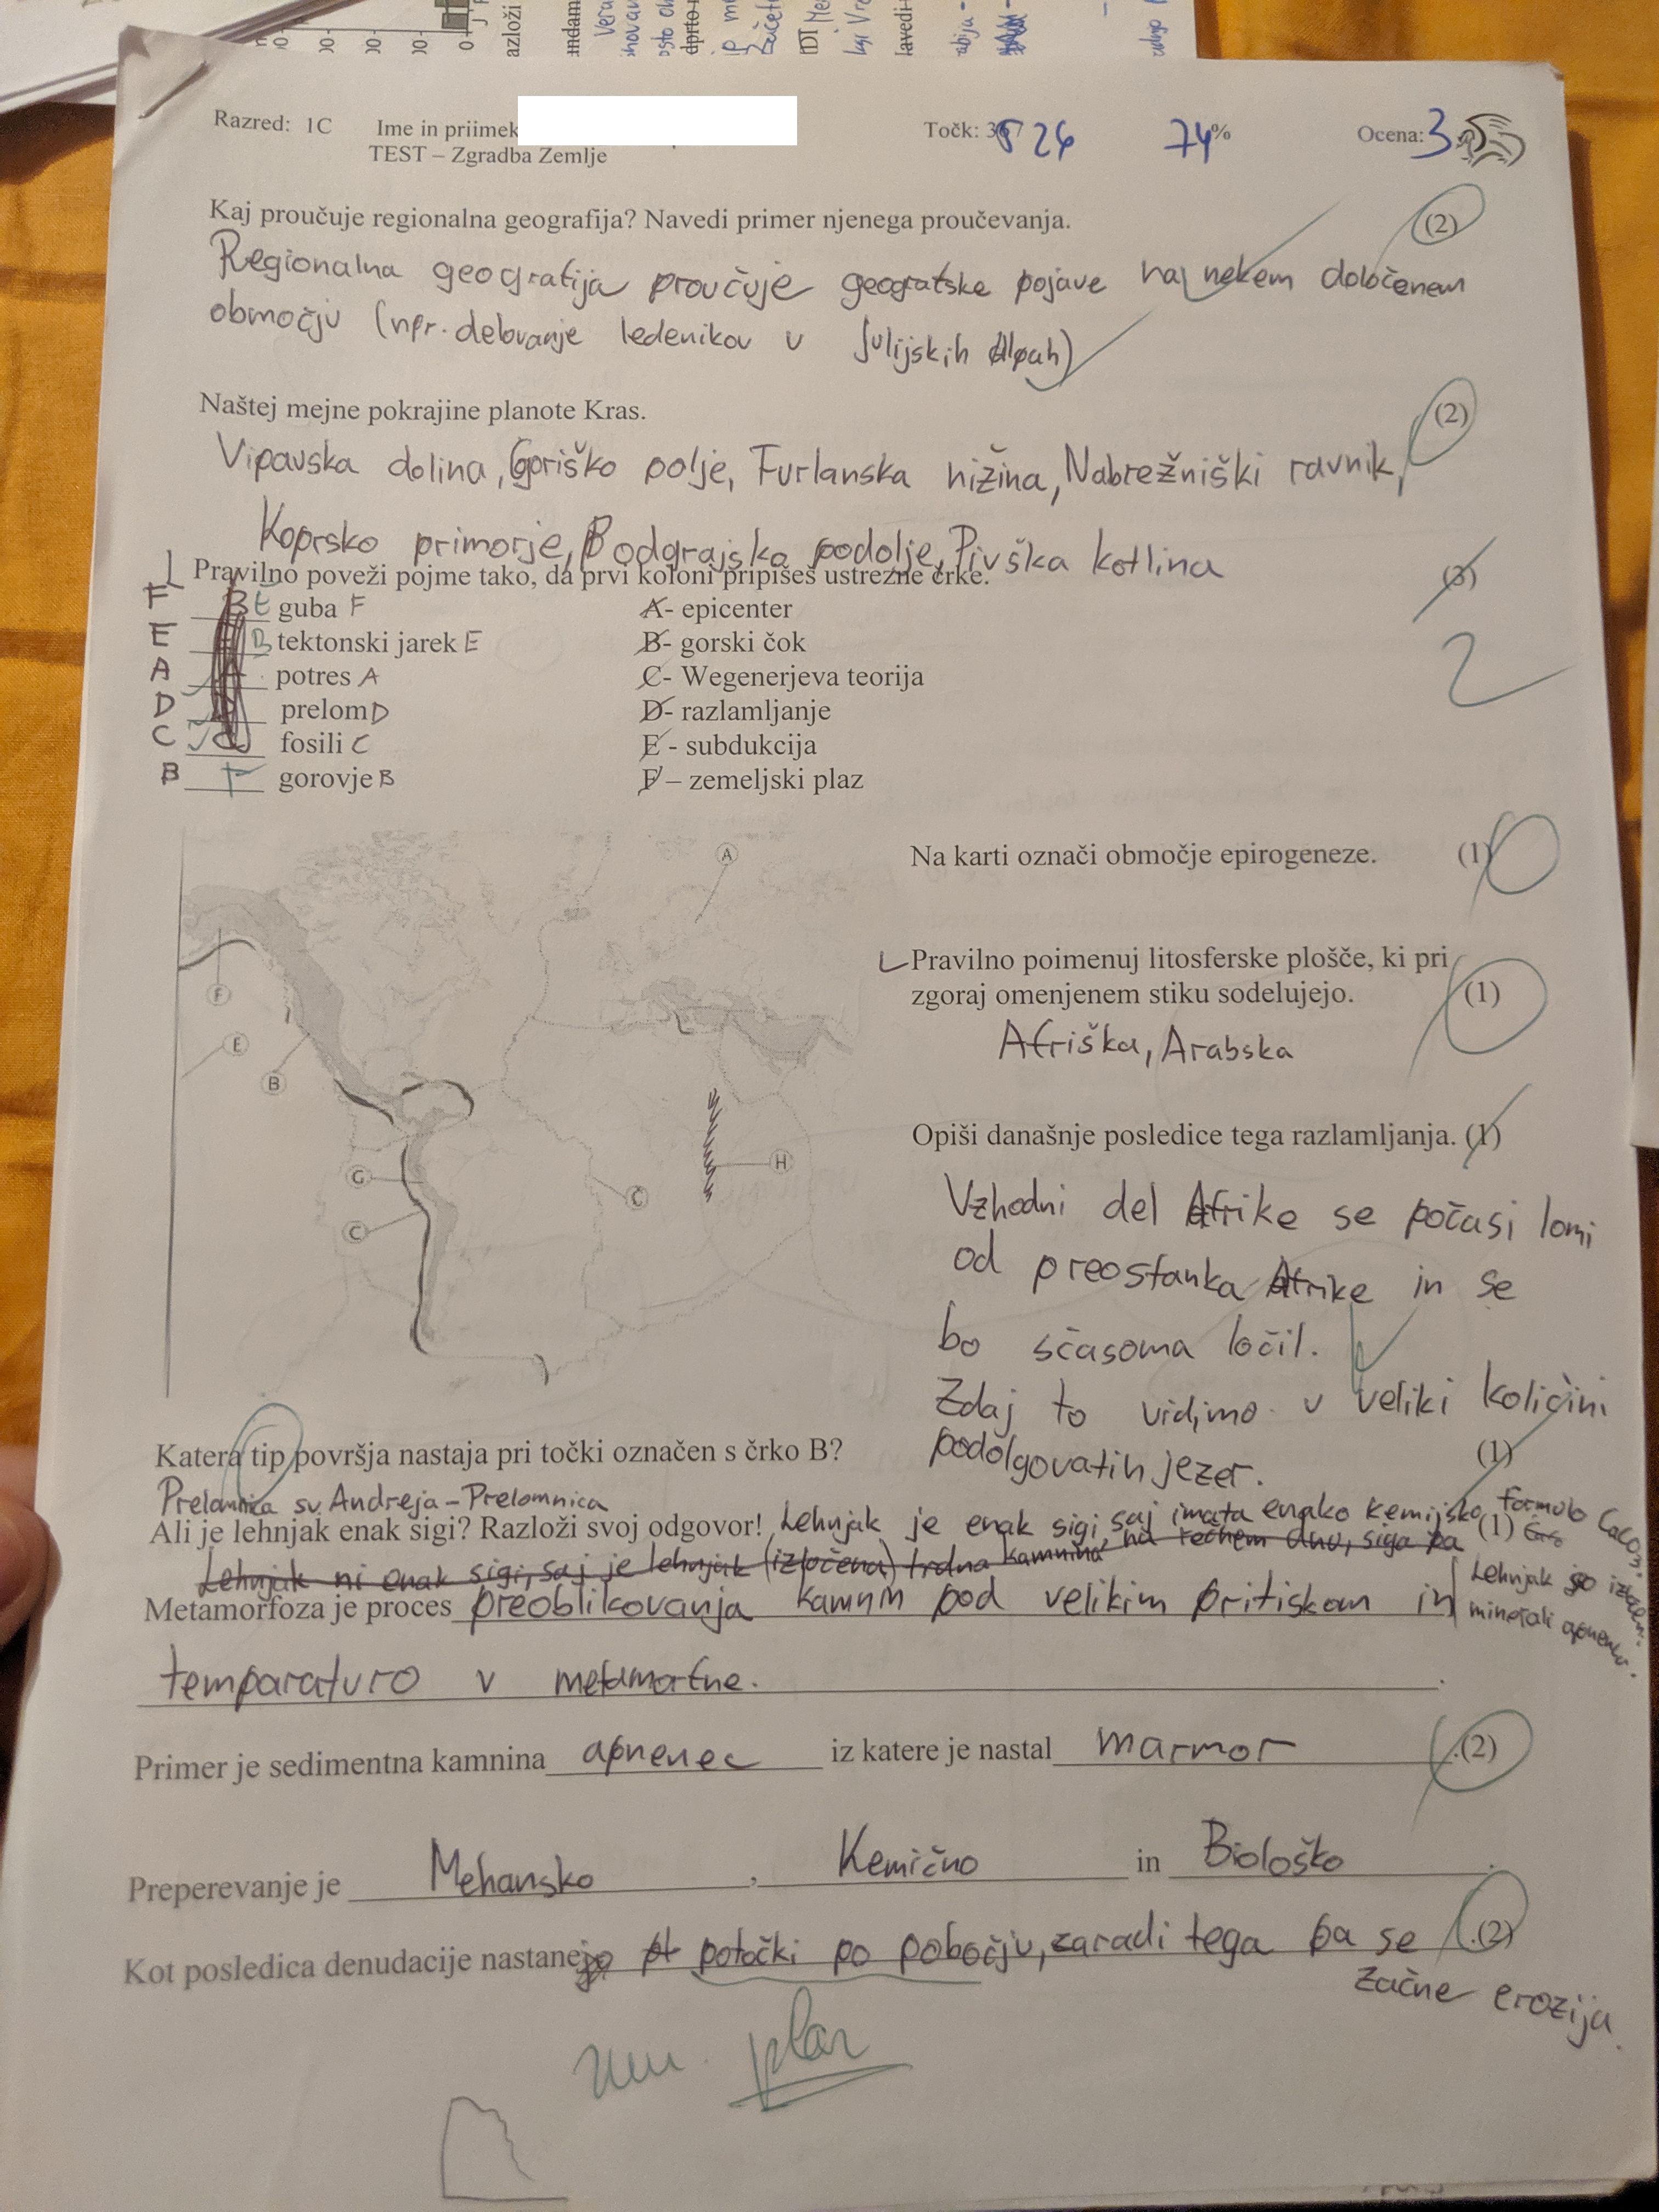 azloži
Razred: 1C Ime in priimek
Točk: 26 74% Ocena: 3
TEST – Zgradba Zemlje
Kaj proučuje regionalna geografija? Navedi primer njenega proučevanja. (2)
Regionalna geografija proučuje geografske pojave na nekem določenem
območju (npr. delovanje ledenikov v Julijskih Alpah)
Naštej mejne pokrajine planote Kras. (2)
Vipavska dolina, Goriško polje, Furlanska nižina, Nabrežniški ravnik,
Koprsko primorje, Podgrajsko podolje, Pivška kotlina
Pravilno poveži pojme tako, da prvi koloni pripišeš ustrezne črke. (3)
2
F E guba F A- epicenter
E B tektonski jarek E B- gorski čok
A potres A C- Wegenerjeva teorija
D prelom D D- razlamljanje
C fosili C E - subdukcija
B F gorovje B F – zemeljski plaz
A
F
E
B
G
C
Č
H
Na karti označi območje epirogeneze. (1) 0
Pravilno poimenuj litosferske plošče, ki pri
zgoraj omenjenem stiku sodelujejo. (1)
Afriška, Arabska
Opiši današnje posledice tega razlamljanja. (1)
Vzhodni del Afrike se počasi lomi
od preostanka Afrike in se
bo sčasoma ločil.
Zdaj to vidimo v veliki količini
podolgovatih jezer.
Katera tip površja nastaja pri točki označen s črko B? (1)
Prelomnica sv. Andreja – Prelomnica
Ali je lehnjak enak sigi? Razloži svoj odgovor! Lehnjak je enak sigi, saj imata enako kemijsko formulo CaCO3. (1)
Lehnjak ni enak sigi, saj je lehnjak (izločena) trdna kamnina na rečnem dnu, siga pa
Lehnjak so
minerali
Metamorfoza je proces preoblikovanja kamnin pod velikim pritiskom in
temparaturo v metamorfne.
Primer je sedimentna kamnina apnenec iz katere je nastal marmor. (2)
Preperevanje je Mehansko, Kemično in Biološko.
Kot posledica denudacije nastanejo potočki po pobočju, zaradi tega pa se (2)
začne erozija.
plaz